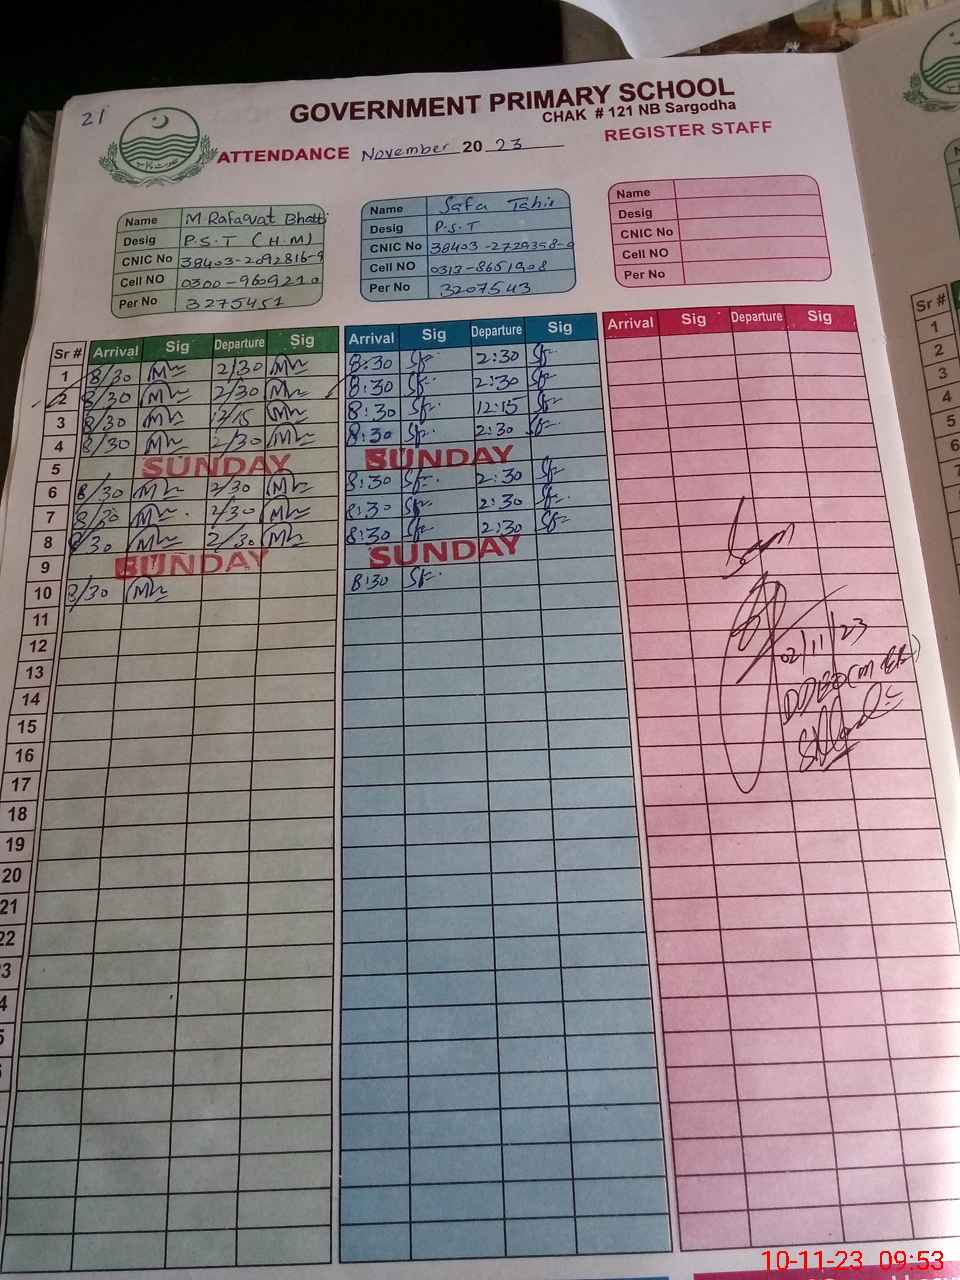 21
GOVERNMENT PRIMARY SCHOOL
CHAK # 121 NB Sargodha
ATTENDANCE November 2023
REGISTER STAFF
Name M Rafaqat Bhatti
Desig P.S.T (H.M)
CNIC No 38403-2092816-9
Cell NO 0300-9609210
Per No 3275451
Name Safa Tahir
Desig P.S.T
CNIC No 38403-2729398-
Cell NO 0313-8651908
Per No 3207543
Name
Desig
CNIC No
Cell NO
Per No
Sr # Arrival Sig Departure Sig Arrival Sig Departure Sig Arrival Sig Departure Sig
1 8/30 2/30 8:30 Sf 2:30 Sf
2 8/30 2/30 8:30 Sf 2:30 Sf
3 8/30 12/15 8:30 Sf 12:15 Sf
4 8/30 2/30 8:30 Sf 2:30 Sf
5 SUNDAY SUNDAY
6 8/30 2/30 8:30 Sf 2:30 Sf
7 8/30 2/30 8:30 Sf 2:30 Sf
8 8/30 2/30 8:30 Sf 2:30 Sf
9 SUNDAY SUNDAY
10 8/30 8:30 Sf
11
12
13
14
15
16
17
18
19
20
21
22
3
4
5
02/11/23
Sr #
1
2
3
4
5
6
7
10-11-23 09:53